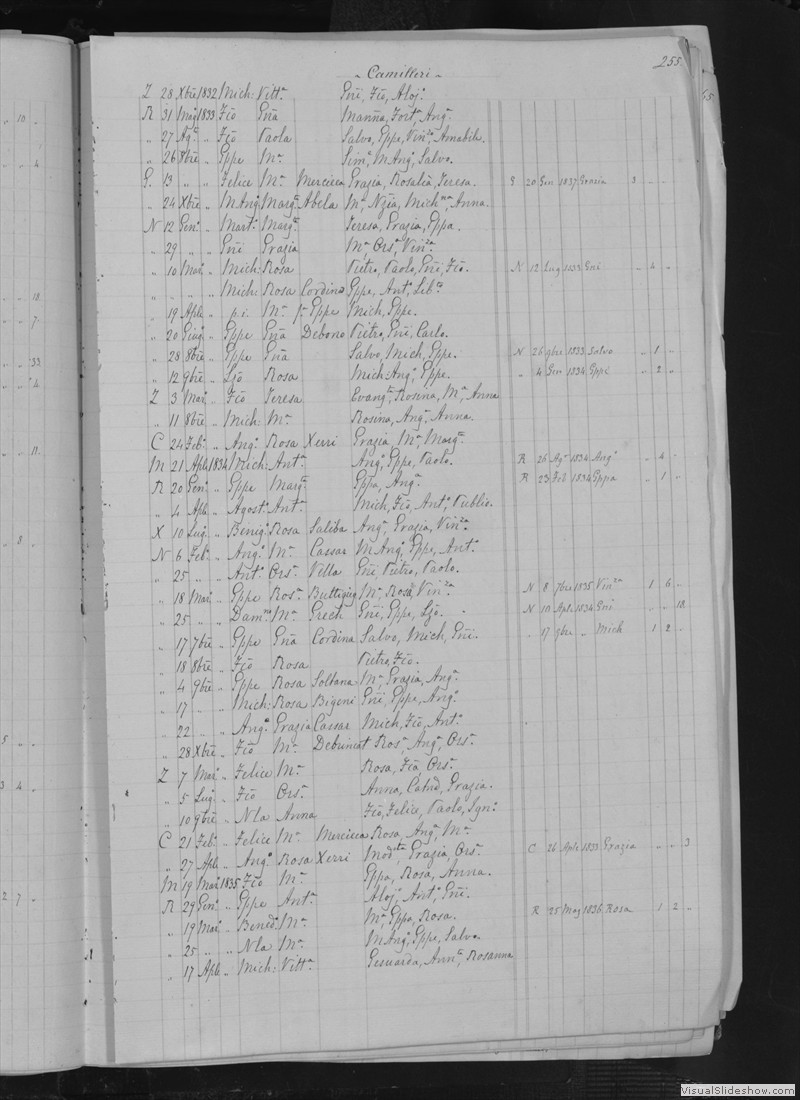 255
~ Camilleri ~
Z 28 Xbre 1832 Mich: Vitta. Eni, Fio, Aloj.
R 31 Mag 1833 Fio Ena Manna, Forta. Ang.
„ 27 Ag. „ Fio Paola Salvo, Eppe, Vinza. Amabile.
„ 26 8bre „ Eppe Ma. Sim. M Ang. Salvo.
G. 13 „ „ Felice Ma. Mercieca Grazia, Rosalia, Teresa. G 20 Gen 1837 Grazia 3 „ „
„ 24 Xbre „ M Ang Marga. Abela Ma. Nzia, Mich Anna.
N 12 Gen. „ Mart. Marga. Teresa, Grazia, Eppa.
„ 29 „ „ Eni Grazia Ma. Ors. Vinza.
„ 10 Mar. „ Mich: Rosa Pietro, Paolo, Eni, Fio. N 12 Lug 1833 Eni „ 4 „
„ „ „ „ Mich: Rosa Cordina Eppe, Ant.
„ 19 Aple „ p.i. Ma. Eppe Mich, Eppe.
„ 20 Giug „ Eppe Ena Debono Pietro, Eni, Carlo.
„ 28 8bre „ Eppe Ena Salvo, Mich, Eppe. N 26 9bre 1833 Salvo „ 1 „
„ 12 9bre „ Rosa Mich Ang. Eppe. „ 4 Gen 1834 Eppe „ 2 „
Z 3 Mar. „ Fio Teresa Evangta. Rosina, Ma. Anna
„ 11 8bre „ Mich: Ma. Rosina, Ang. Anna.
C 24 Feb. „ Ang. Rosa Xerri Grazia, Ma. Marga.
M 21 Aple 1834 Mich: Anta. Ang. Eppe, Paolo. R 26 Ag. 1834 Ang. „ 4 „
R 20 Gen. „ Eppe Marga. Eppa, Ang. R 23 Feb 1834 Eppa „ 1 „
„ 4 Aple „ Agost. Anta. Mich, Fio, Ant. Publio.
X 10 Lug. „ Benig. Rosa Saliba Ang. Grazia, Vinza.
N 6 Feb. „ Ang. Ma. Cassar M Ang. Eppe, Ant.
„ 25 „ „ Ant. Ors. Vella Eni, Pietro, Paolo.
„ 18 Mar. „ Eppe Ros. Buttigieg Ma. Rosa, Vinza. N 8 7bre 1835 Vinza 1 6 „
„ 25 „ „ Ma. Grech Eni, Eppe, N 10 Aple 1834 Eni „ „ 18
„ 17 7bre „ Eppe Ena Cordina Salvo, Mich, Eni. „ 17 9bre „ Mich 1 2 „
„ 18 8bre „ Fio Rosa Pietro, Fio.
„ 4 9bre „ Eppe Rosa Soltana Ma. Grazia, Ang.
„ 17 „ „ Mich: Rosa Bigeni Eni, Eppe, Ang.
„ 22 „ „ Ang. Grazia Cassar Mich, Fio, Ant.
„ 28 Xbre „ Fio Ma. Debrincat Ros. Ang. Ors.
Z 7 Mar. „ Felice Ma. Rosa, Fia, Ors.
„ 5 Lug. „ Fio Ors. Anna, Grazia.
„ 10 9bre „ Nla Anna Fio, Felice, Paolo, Ign.
C 21 Feb. „ Felice Ma. Mercieca Rosa, Ang. Ma.
„ 27 Aple „ Ang. Rosa Xerri Grazia, Ors. C 26 Aple 1833 Grazia „ „ 3
M 19 Mar. 1835 Fio Ma. Eppa, Rosa, Anna.
R 29 Gen. „ Eppe Anta. Aloj. Ant. Eni.
„ 19 Mar. „ Bened. Ma. Ma. Eppa, Rosa. R 25 Mag 1836 Rosa 1 2 „
„ 25 „ „ Nla Ma. M Ang. Eppe, Salvo.
„ 17 Aple „ Mich: Vitta. Gesuarda, Rosanna
VisualSlideshow.com